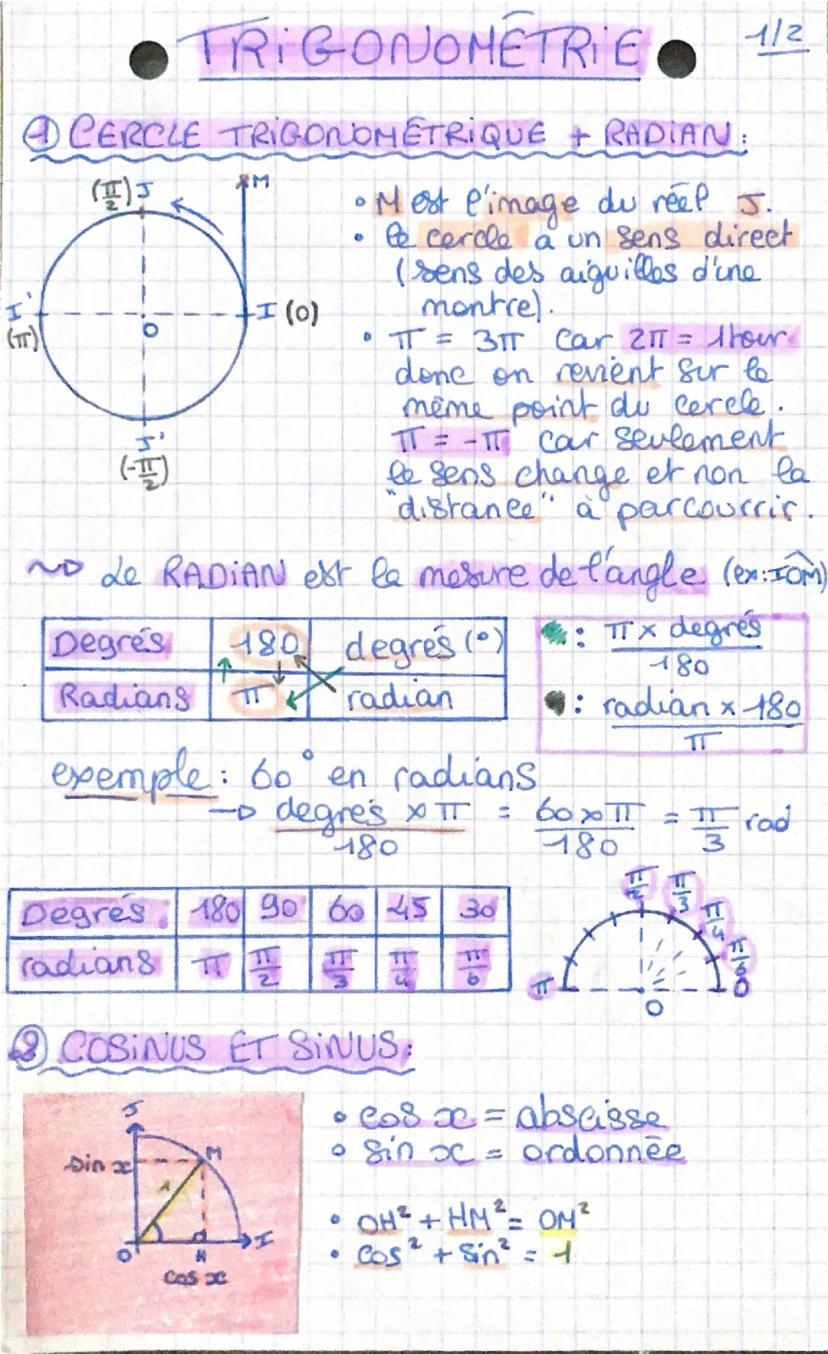 TRIGONOMÉTRIE
1/2
① CERCLE TRIGONOMÉTRIQUE + RADIAN :
(π/2) J
M
I'
(π)
O
I (0)
J'
(-π/2)
• M est l'image du réel J.
• le cercle a un sens direct
(sens des aiguilles d'une
montre).
• π = 3π car 2π = 1 tour
donc on revient sur le
même point du cercle.
π = -π car seulement
le sens change et non la
"distance" à parcourrir.
~> Le RADIAN est la mesure de l'angle (ex: IOM)
Degrés 180 degrés (°)
Radians π radian
: π x degrés / 180
: radian x 180 / π
exemple : 60° en radians
-> degrés x π / 180 = 60 x π / 180 = π/3 rad
Degrés 180 90 60 45 30
radians π π/2 π/3 π/4 π/6
π/2 π/3 π/4 π/6 0
π
O
② COSINUS ET SINUS :
J
sin x
M
1
O
H
I
cos x
• cos x = abscisse
• sin x = ordonnée
• OH² + HM² = OM²
• cos² + sin² = 1